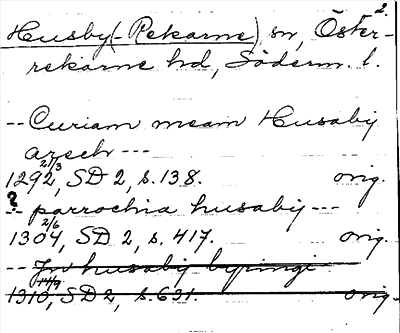 2.
Husby (-Rekarne) sn, Öster-
rekarne hd, Söderm. l.
-- Curiam meam Husaby
arsch ---
1292 21/3, SD 2, s. 138. orig.
? -- parrochia husabij ---
1304 2/6, SD 2, s. 417. orig.
-- In husabij byringi
1310 14/9, SD 2, s. 631. orig.